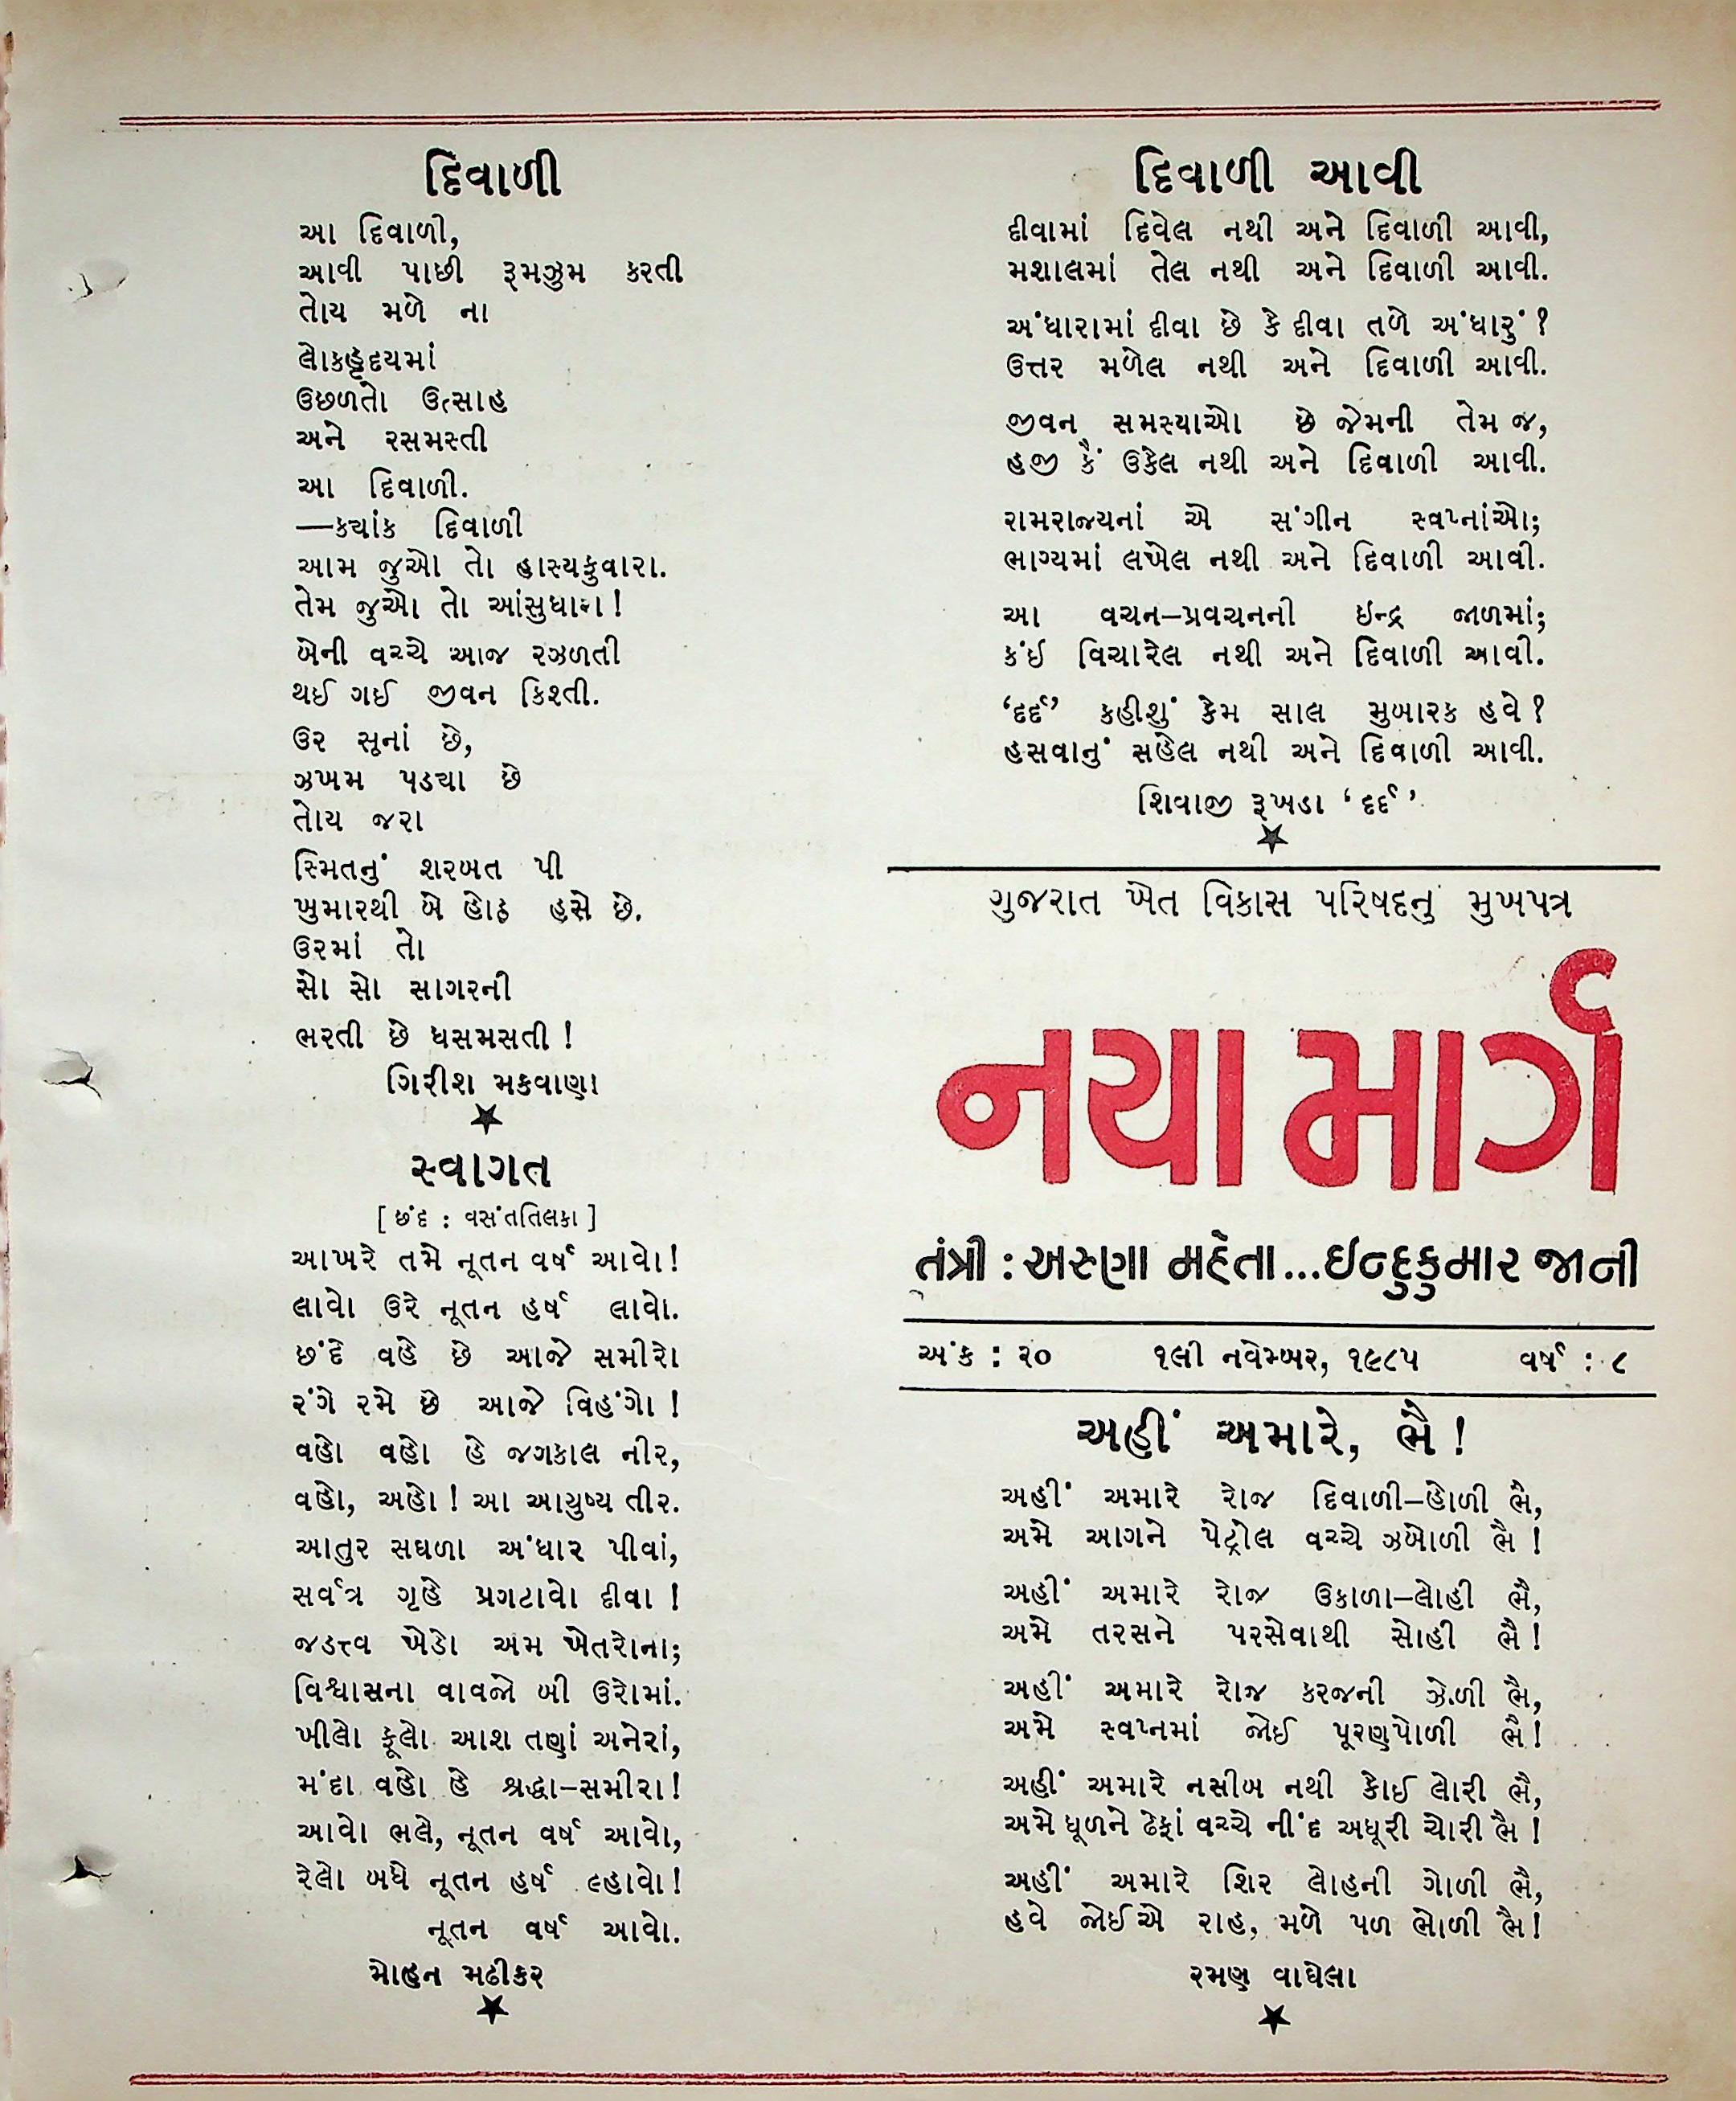 દિવાળી
આ દિવાળી,
આવી પાછી રૂમઝુમ કરતી
તોય મળે ના
લોકહૃદયમાં
ઉછળતો ઉત્સાહ
અને રસમસ્તી
આ દિવાળી.
—ક્યાંક દિવાળી
આમ જુઓ તો હાસ્યફુવારા.
તેમ જુઓ તો આંસુધારા !
બેની વચ્ચે આજ રઝળતી
થઈ ગઈ જીવન કિશ્તી.
ઉર સૂનાં છે,
ઝખમ પડ્યા છે
તોય જરા
સ્મિતનું શરબત પી
ખુમારથી બે હોઠ હસે છે.
ઉરમાં તો
સો સો સાગરની
ભરતી છે ધસમસતી !
ગિરીશ મકવાણા
સ્વાગત
[ છંદ : વસંતતિલકા ]
આખરે તમે નૂતન વર્ષ આવો !
લાવો ઉરે નૂતન હર્ષ લાવો.
છંદે વહે છે આજે સમીરો
રંગે રમે છે આજે વિહંગો !
વહો વહો હે જગકાલ નીર,
વહો, અહો ! આ આયુષ્ય તીર.
આતુર સઘળા અંધાર પીવાં,
સર્વત્ર ગૃહે પ્રગટાવો દીવા !
જડત્ત્વ ખેડો અમ ખેતરોના;
વિશ્વાસના વાવજો બી ઉરોમાં.
ખીલો ફૂલો આશ તણાં અનેરાં,
મંદા વહો હે શ્રદ્ધા–સમીરા !
આવો ભલે, નૂતન વર્ષ આવો,
રેલો બધે નૂતન હર્ષ લ્હાવો !
નૂતન વર્ષ આવો.
મોહન મઢીકર
દિવાળી આવી
દીવામાં દિવેલ નથી અને દિવાળી આવી,
મશાલમાં તેલ નથી અને દિવાળી આવી.
અંધારામાં દીવા છે કે દીવા તળે અંધારું ?
ઉત્તર મળેલ નથી અને દિવાળી આવી.
જીવન સમસ્યાઓ છે જેમની તેમ જ,
હજી કૈં ઉકેલ નથી અને દિવાળી આવી.
રામરાજ્યનાં એ સંગીન સ્વપ્નાંઓ;
ભાગ્યમાં લખેલ નથી અને દિવાળી આવી.
આ વચન–પ્રવચનની ઇન્દ્ર જાળમાં;
કંઇ વિચારેલ નથી અને દિવાળી આવી.
‘દર્દ’ કહીશું કેમ સાલ મુબારક હવે ?
હસવાનું સહેલ નથી અને દિવાળી આવી.
શિવાજી રૂખડા ‘દર્દ’
ગુજરાત ખેત વિકાસ પરિષદનું મુખપત્ર
નયા માર્ગ
તંત્રી : અરુણા મહેતા...ઇન્દુકુમાર જાની
અંક : ૨૦ ૧લી નવેમ્બર, ૧૯૮૫ વર્ષ : ૮
અહીં અમારે, ભૈ !
અહીં અમારે રોજ દિવાળી–હોળી ભૈ,
અમે આગને પેટ્રોલ વચ્ચે ઝબોળી ભૈ !
અહીં અમારે રોજ ઉકાળા–લોહી ભૈ,
અમે તરસને પરસેવાથી સોહી ભૈ !
અહીં અમારે રોજ કરજની ઝોળી ભૈ,
અમે સ્વપ્નમાં જોઈ પૂરણપોળી ભૈ !
અહીં અમારે નસીબ નથી કોઈ લોરી ભૈ,
અમે ધૂળને ઢેફાં વચ્ચે નીંદ અધૂરી ચોરી ભૈ !
અહીં અમારે શિર લોહની ગોળી ભૈ,
હવે જોઈએ રાહ, મળે પળ ભોળી ભૈ !
રમણ વાઘેલા